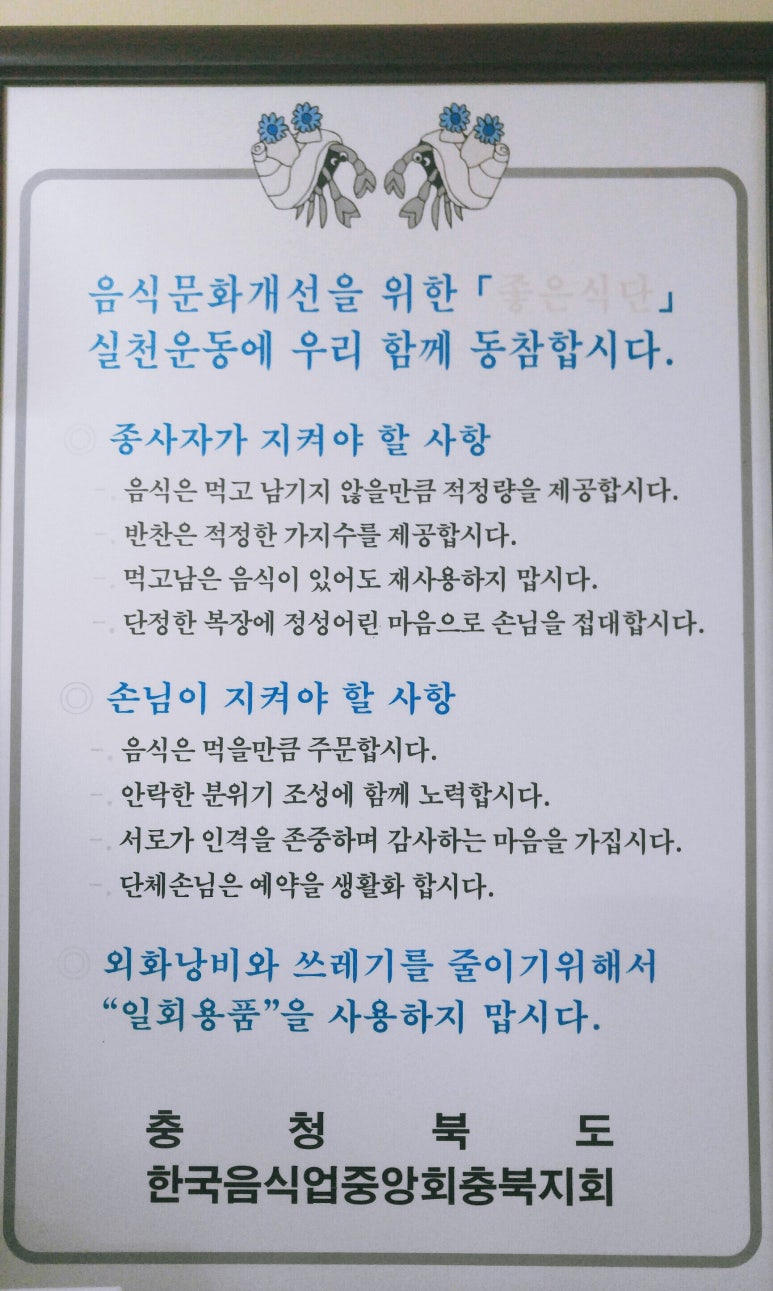 음식문화개선을 위한 「좋은식단」
실천운동에 우리 함께 동참합시다.
◎ 종사자가 지켜야 할 사항
-. 음식은 먹고 남기지 않을만큼 적정량을 제공합시다.
-. 반찬은 적정한 가지수를 제공합시다.
-. 먹고남은 음식이 있어도 재사용하지 맙시다.
-. 단정한 복장에 정성어린 마음으로 손님을 접대합시다.
◎ 손님이 지켜야 할 사항
-. 음식은 먹을만큼 주문합시다.
-. 안락한 분위기 조성에 함께 노력합시다.
-. 서로가 인격을 존중하며 감사하는 마음을 가집시다.
-. 단체손님은 예약을 생활화 합시다.
◎ 외화낭비와 쓰레기를 줄이기위해서
“일회용품”을 사용하지 맙시다.
충 청 북 도
한국음식업중앙회충북지회